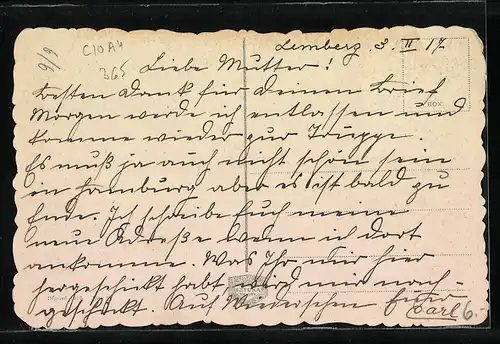 6/9
C10A4
365
Lemberg 3. II 17
Liebe Mutter!
Besten Dank für Deinen Brief
Morgen werde ich entlassen und
komme wieder zur Truppe.
Es muß ja auch nicht schön sein
in Hamburg aber es ist bald zu
Ende. Ich schreibe Euch meine
neue Adreße wenn ich dort
ankomme. Was Ihr mir hier
hergeschickt habt wird mir nach-
geschickt. Auf Wiedersehen Euer
Carl
6.-